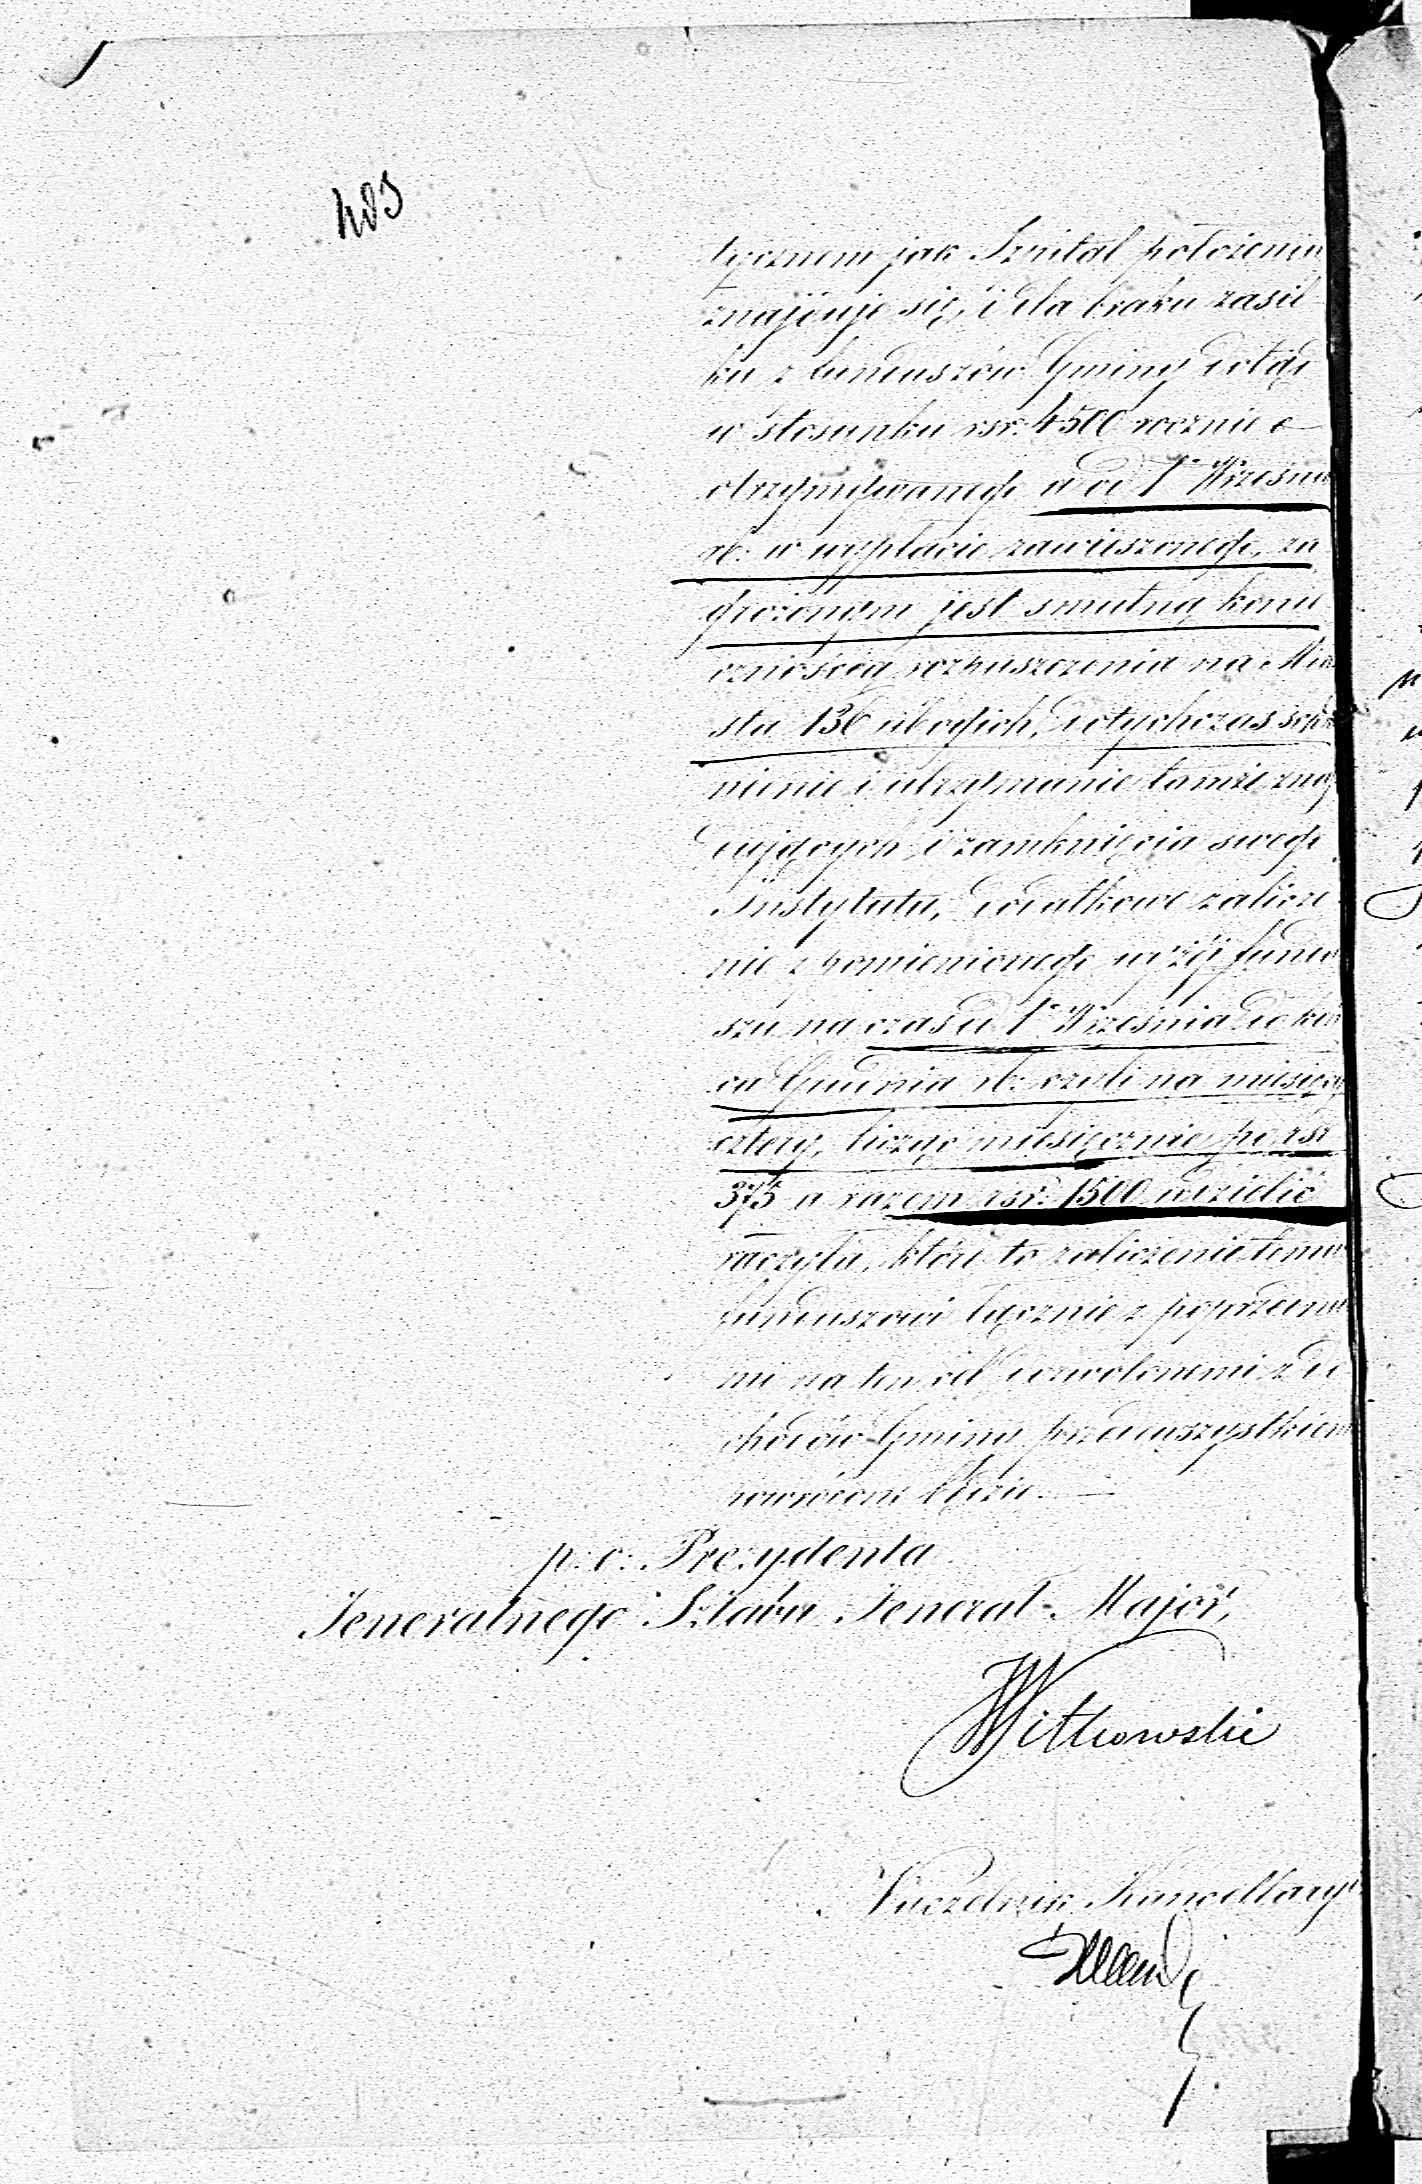 485
tycznem jak Szpital położeniu
znajduje się, i dla braku zasił
ku z funduszów Gminy dotąd
w stosunku rsr: 4500 rocznie o
otrzymywanego a od 1º Wrześni
rb: w wypłacie zawieszonego, za
grożonym jest smutną konie
cznością rozpuszczenia na Mia
sta 136 ubogich, dotychczas schro
nienie i utrzymanie tamże znaj
dujących, i zamknięcia swego
Instytutu, dodatkowe zalicze
nie z pomienionego wyżej fundu
szu na czas od 1º Września do koń
ca Grudnia rb: czyli na miesięcy
cztery, licząc miesięcznie po rsr
375 a razem rsr: 1500 udzielić
raczyła, które to zaliczenie temu
funduszowi łącznie z poprzednie
mi na ten cel dozwolonemi z do
chodów Gminy przedewszystkiem
powrócone będzie.
p. o: Prezydenta
Jeneralnego Sztabu Jenerał-Major,
Witkowski
Naczelnik Kancellaryi